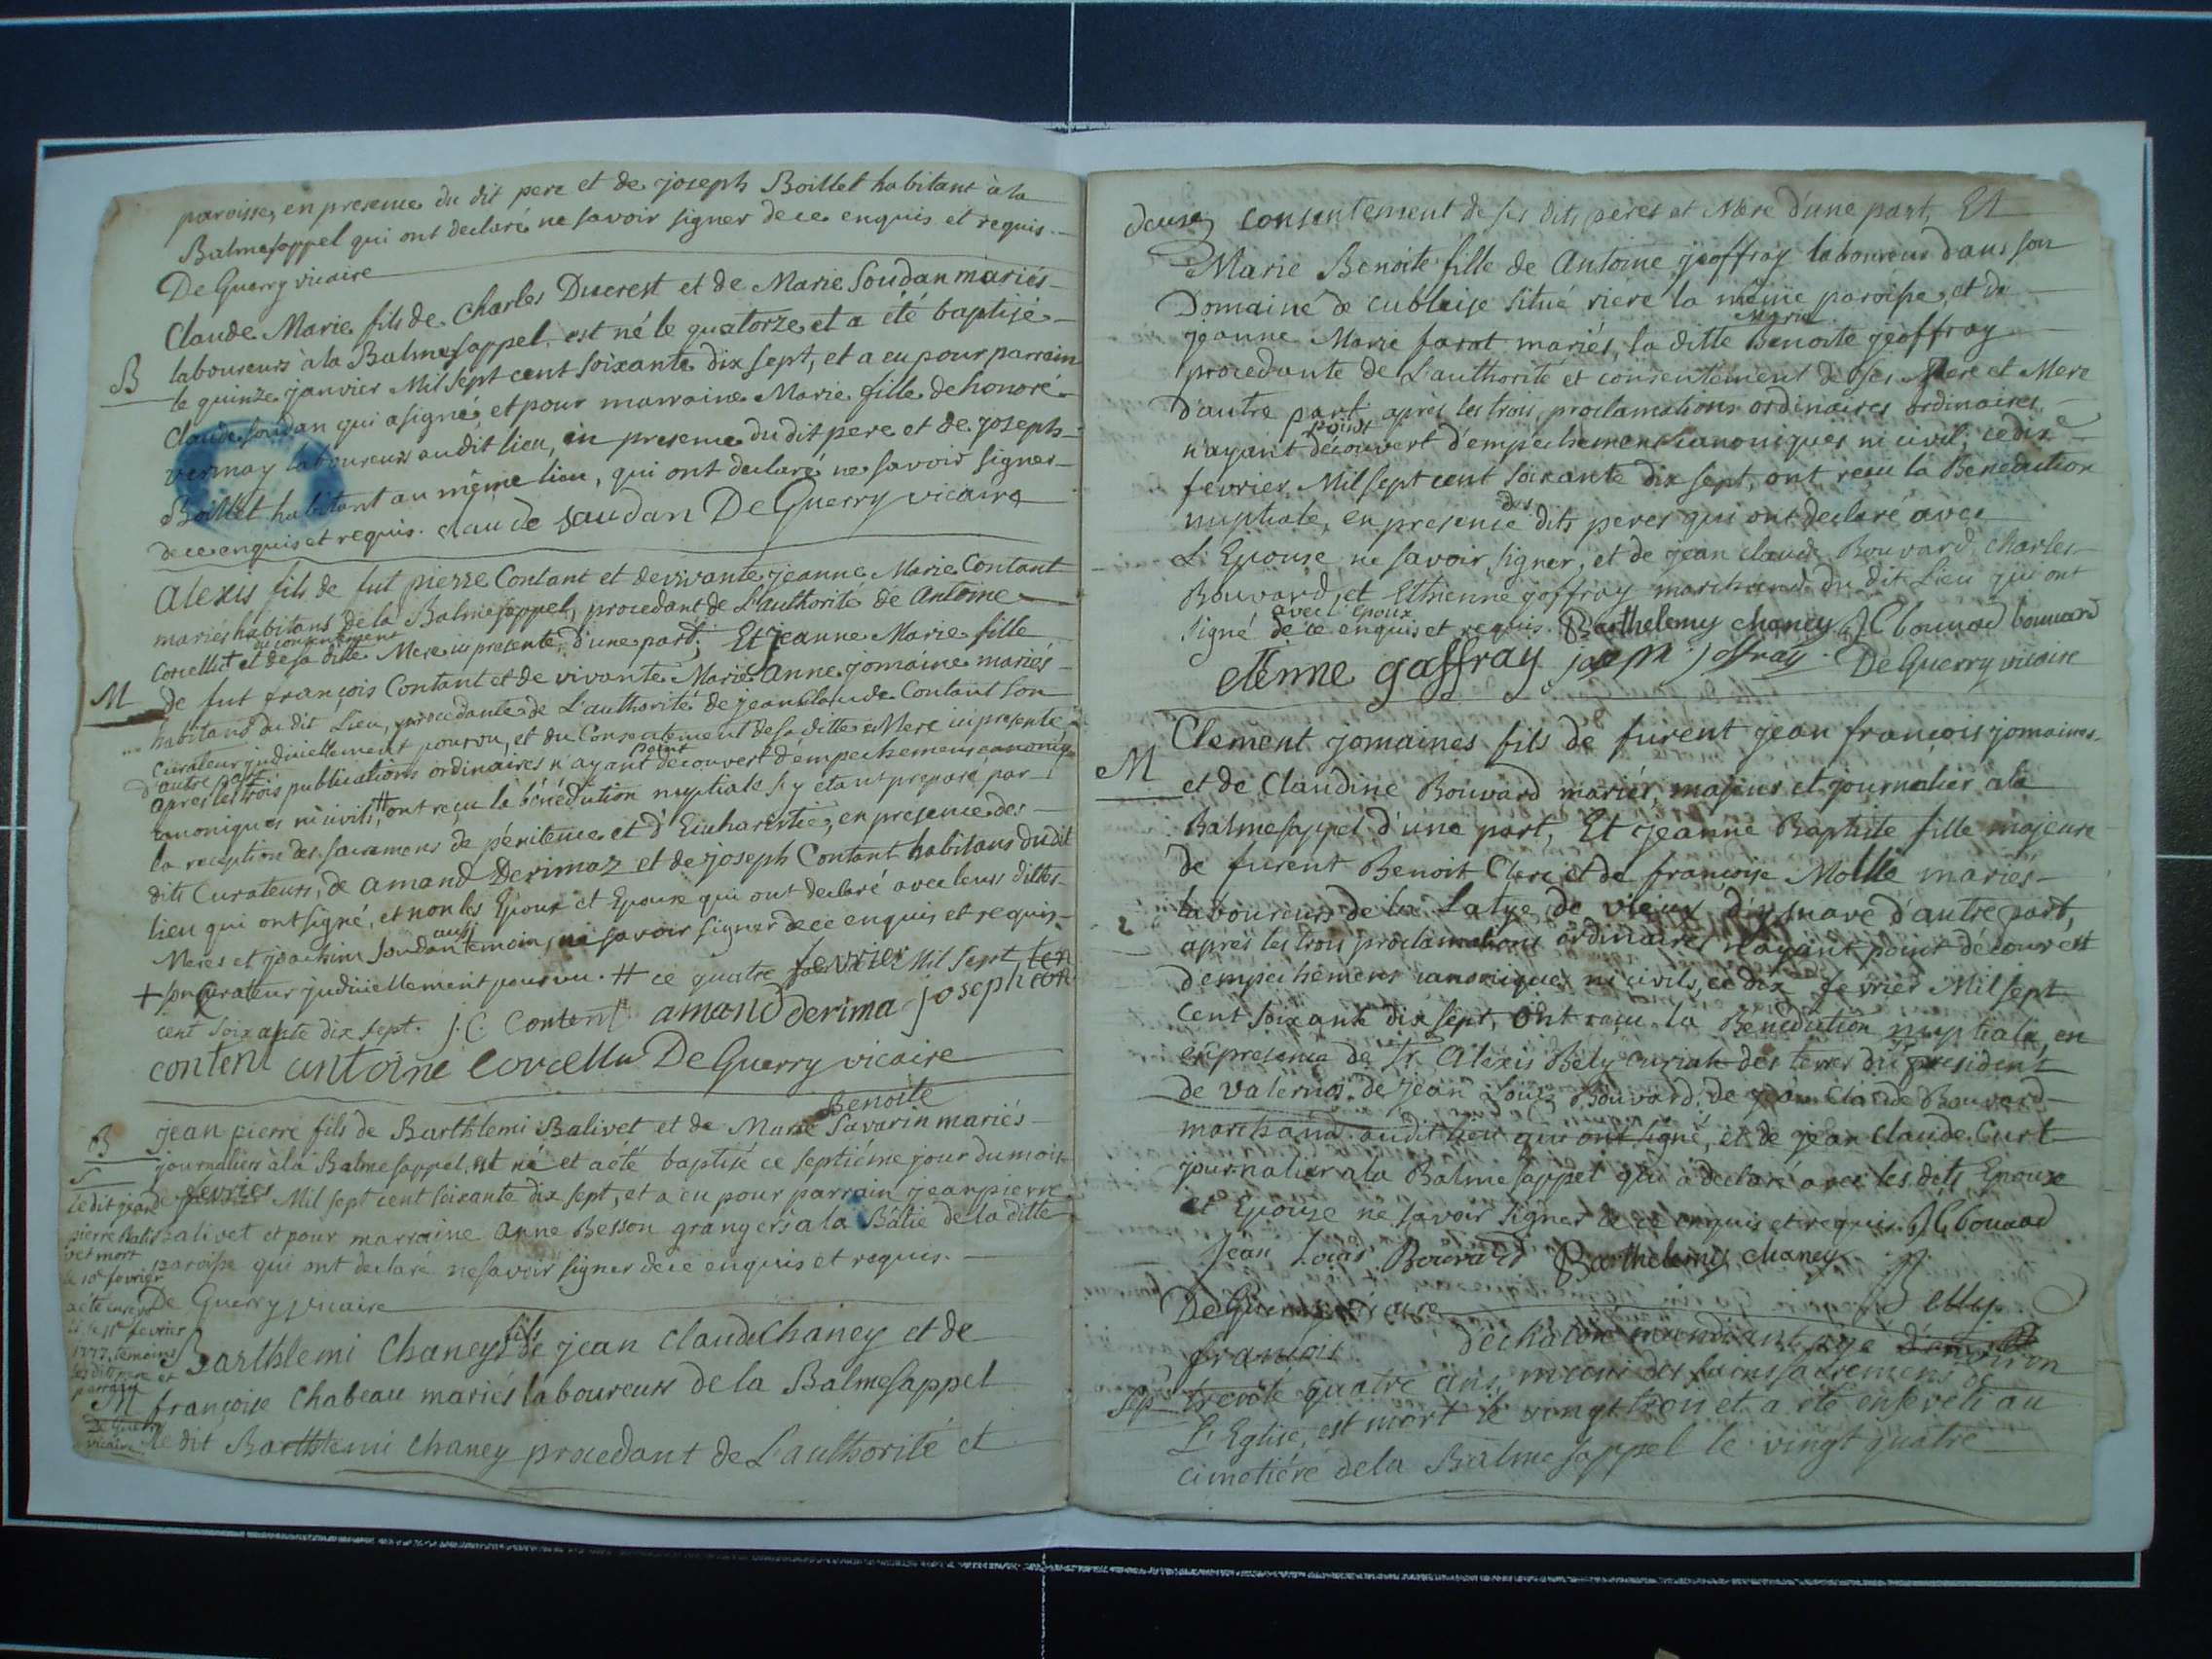 paroisse, en presence du dit pere et de joseph Boillet habitant à la
Balmesappel qui ont declaré ne savoir signer de ce enquis et requis.
De Guerry vicaire
B
Claude Marie fils de Charles Ducrest et de Marie Soudan mariés
laboureurs à la Balmesappel, est né le quatorze et a été baptisé
le quinze janvier Mil sept cent soixante dix sept, et a eu pour parrain
Claude Soudan qui a signé, et pour marraine Marie fille de honoré
vernay laboureurs au dit lieu, en presence du dit pere et de joseph
Boillet habitant au même lieu, qui ont declaré ne savoir signer
de ce enquis et requis. claude saudan De Guerry vicaire
M
Alexis fils de fut pierre Contant et de vivante jeanne Marie Contant
mariés habitans de la Balmesappel, procedant de L'authorité de Antoine
du consentement
Corcellut et de sa ditte Mere ici presente d'une part; Et jeanne Marie fille
de fut françois Contant et de vivante Marie Anne jomaine mariés
habitans du dit Lieu, procedante de L'authorité de jean Claude Contant son
Curateur judiciellement pourvu, et du Consentement de sa ditte Mere ici presente
d'autre part point
apres les trois publications ordinaires n'ayant decouvert d'empechemens canoniq
canoniques ni civils, # ont reçu la bénédiction nuptiale s'y etant preparé par
la reception des sacremens de pénitence et d'Eucharistie, en presence des
dits Curateurs, de amand Derimaz et de joseph Contant habitans du dit
lieu qui ont signé, et non les Epoux et Epouse qui ont declaré avec leurs dittes
aussi
Meres et joachim Soudan temoin, ne savoir signer de ce enquis et requis.
+ son Curateur judiciellement pourvu. # ce quatre fevrier Mil sept
cent soixante dix sept. J. C. Content amand derima joseph con
content antoine corcellu De Guerry vicaire
B
S
Benoite
jean pierre fils de Barthlemi Balivet et de Marie Savarin mariés
journaliers à la Balmesappel, est né et a été baptisé ce septiéme jour du mois
de fevrier Mil sept cent soixante dix sept, et a eu pour parrain jean pierre
Balivet et pour marraine Anne Besson grangers a la Bâtie de la ditte
paroisse qui ont declaré ne savoir signer de ce enquis et requis.
De Guerry vicaire
Le dit jean
pierre Bali
vet mort
le 10e fevrier
a été enseve
li le 11e fevrier
1777, temoins
les dits pere et
parrain
De Guerry
vicaire
M
Barthlemi Chaney fils de jean claude Chaney et de
françoise Chabeau mariés laboureurs de la Balmesappel
le dit Barthlemi Chaney procedant de L'authorité et
consentement de ses dits peres et Mere d'une part, Et
Marie Benoite fille de Antoine geoffray laboureur dans son
Domaine de cublaise situé riére la même paroisse, et de
Marie
jeanne Marie farat mariés, la ditte Benoite geoffray
procedante de L'authorité et consentement de ses Pere et Mere
d'autre part après les trois proclamations ordinaires ordinaires
point
n'ayant découvert d'empechemens canoniques ni civil, ce dixe
fevrier Mil sept cent soixante dix sept, ont reçu la Benediction
nuptiale, en presence des dits peres qui ont declaré avec
L'Epouse ne savoir signer, et de jean claude Bouvard, Charles
Bouvard, et Ethienne goffray marchand du dit Lieu qui ont
avec l'epoux
signé de ce enquis et requis. Barthelemy chaney JC bouvard bouvard
etienne gaffray joseph joffray De Guerry vicaire
M
Clement jomaines fils de furent jean françois jomaines
et de Claudine Bouvard mariés, majeur et journalier a la
Balmesappel d'une part, Et jeanne Baptiste fille majeure
de furent Benoit Clerc et de françoise Mollie mariés
laboureurs de la Latye de vieux d'isenave d'autre part,
après les trois proclamations ordinaires n'ayant point découvert
d'empechemens canoniques ni civils, ce dix fevrier Mil sept
Cent soixante dix sept, Ont reçu la Benediction nuptiale, en
en presence de Sr Alexis Bely curial des terres du president
de valernos, de jean Louis Bouvard, de jean Claude Bouvard
marchand au dit lieu qui ont signé, et de jean claude Curt
journalier a la Balmesappel qui a declaré avec les dits Epoux
et Epouse ne savoir signer de ce enquis et requis. JC bouvard
Jean Louis Bouvard Barthelemy chaney
De Guerry vicaire Belly
Sep.
françois dechalon mendiant agé d'environ
trente quatre ans, muni des saints sacremens de
L'Eglise, est mort le vingt trois et a été enseveli au
cimetiére de la Balmesappel le vingt quatre